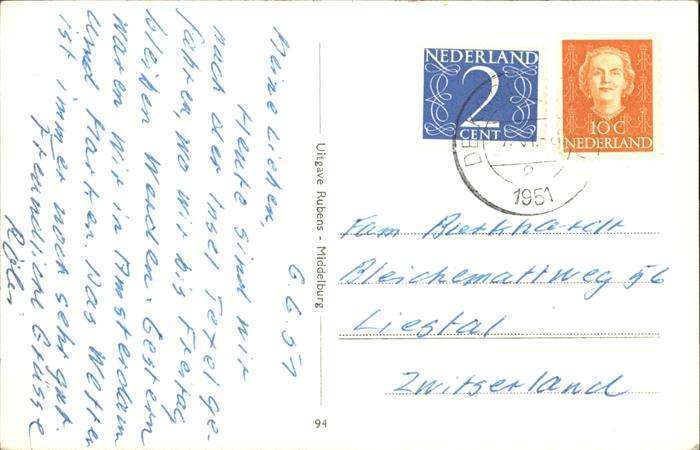 6.6.51
Meine Lieben,
Heute sind wir
nach der Insel Texel ge-
fahren, wo wir bis Freitag
bleiben werden. Gestern
waren wir in Amsterdam
und Marken. Das Wetter
ist immer noch sehr gut.
Freundliche Grüsse
Uitgave Rubens - Middelburg
94
NEDERLAND
2
CENT
10 C
NEDERLAND
DE
1951
Fam Burkhardt
Bleichemattweg 56
Liestal
Zwitserland